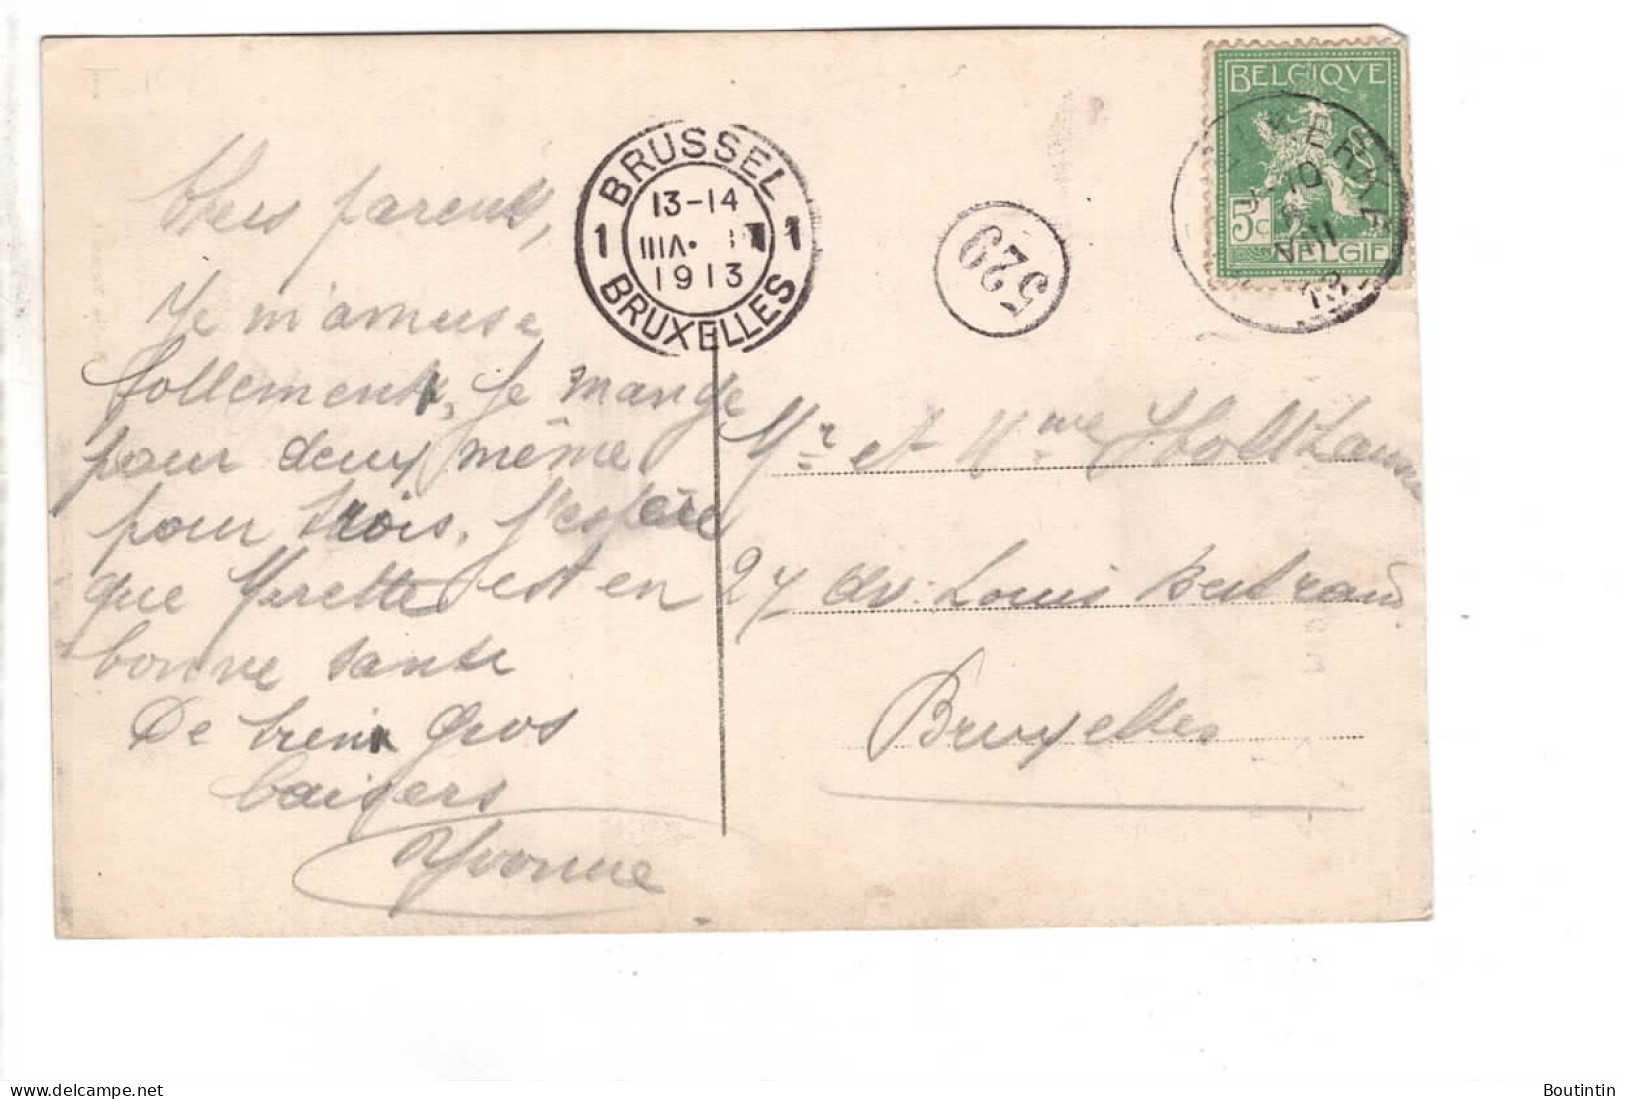 BELGIQVE
5c
BELGIE
BRUSSEL
13-14
1 VIII 1
1913
BRUXELLES
529
10
VIII
13
Chers parents,
Je m'amuse
follement, je mange
pour deux même
pour trois. J'espère
que Mirette est en
bonne sante
De bien gros
baisers
Yvonne
Mr et Mme
27 av. Louis Bertrand
Bruxelles
delcampe.net
Boutintin